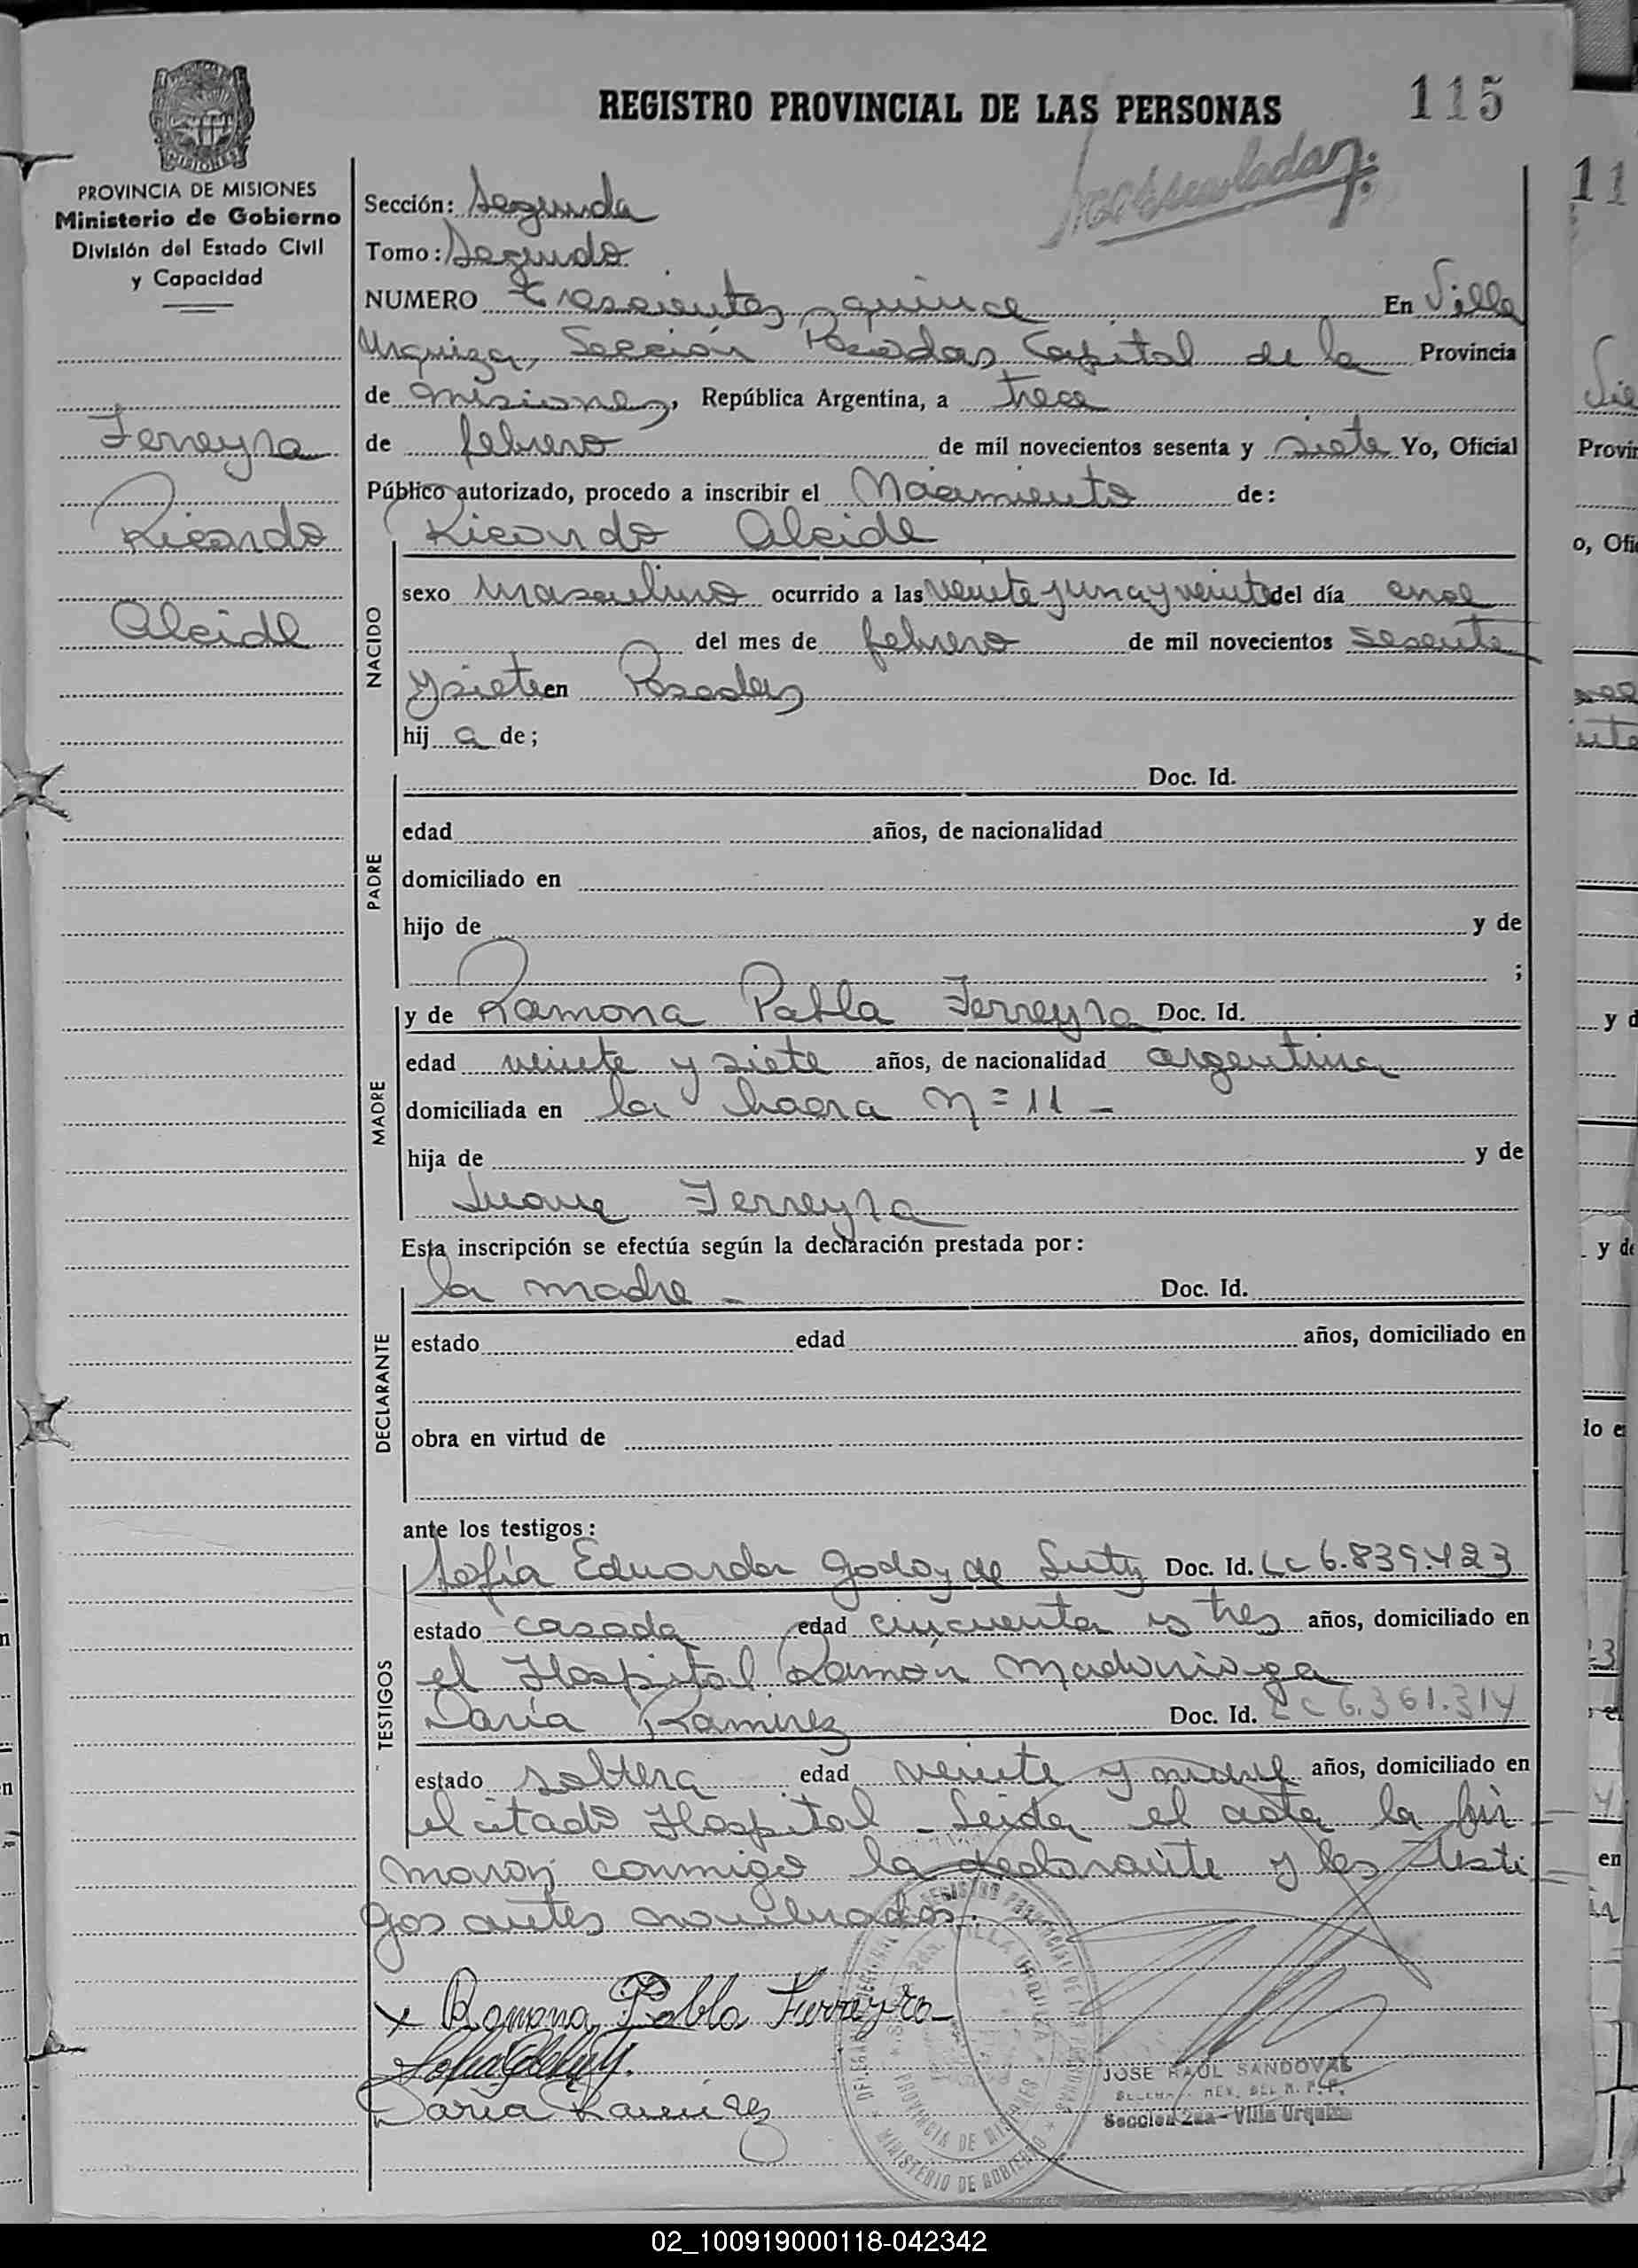 REGISTRO PROVINCIAL DE LAS PERSONAS
115
PROVINCIA DE MISIONES
Ministerio de Gobierno
División del Estado Civil
y Capacidad
Ferreyra
Ricardo
Alcide
Sección: Segunda
Tomo: Segundo
NUMERO Trescientos quince En Villa
Urquiza, Sección Posadas, Capital de la Provincia
de Misiones, República Argentina, a trece
de febrero de mil novecientos sesenta y siete Yo, Oficial
Público autorizado, procedo a inscribir el Nacimiento de:
NACIDO
Ricardo Alcide
sexo masculino ocurrido a las veinte y una y veinte del día once
del mes de febrero de mil novecientos sesenta
y siete en Posadas
hij a de;
PADRE
Doc. Id.
edad años, de nacionalidad
domiciliado en
hijo de y de
;
MADRE
y de Ramona Pabla Ferreyra Doc. Id.
edad veinte y siete años, de nacionalidad argentina
domiciliada en la chacra Nº 11 -
hija de y de
Juana Ferreyra
Esta inscripción se efectúa según la declaración prestada por:
DECLARANTE
la madre - Doc. Id.
estado edad años, domiciliado en
obra en virtud de
ante los testigos:
TESTIGOS
Sofía Eduarda Godoy de Doc. Id. LC 6.839.423
estado casada edad cincuenta y tres años, domiciliado en
el Hospital Ramón Madariaga
Daría Ramirez Doc. Id. LC 6.361.314
estado soltera edad veinte y nueve años, domiciliado en
el citado Hospital - Leida el acta la fir
maron conmigo la declarante y los testi
gos antes nombrados.
x Ramona Pabla Ferreyra
Daría Ramírez
JOSE RAUL SANDOVAL
Seccion 2da - Villa Urquiza
REGISTRO PROVINCIAL DE LAS PERSONAS
VILLA URQUIZA
PROVINCIA DE MISIONES
MINISTERIO DE GOBIERNO
02_100919000118-042342